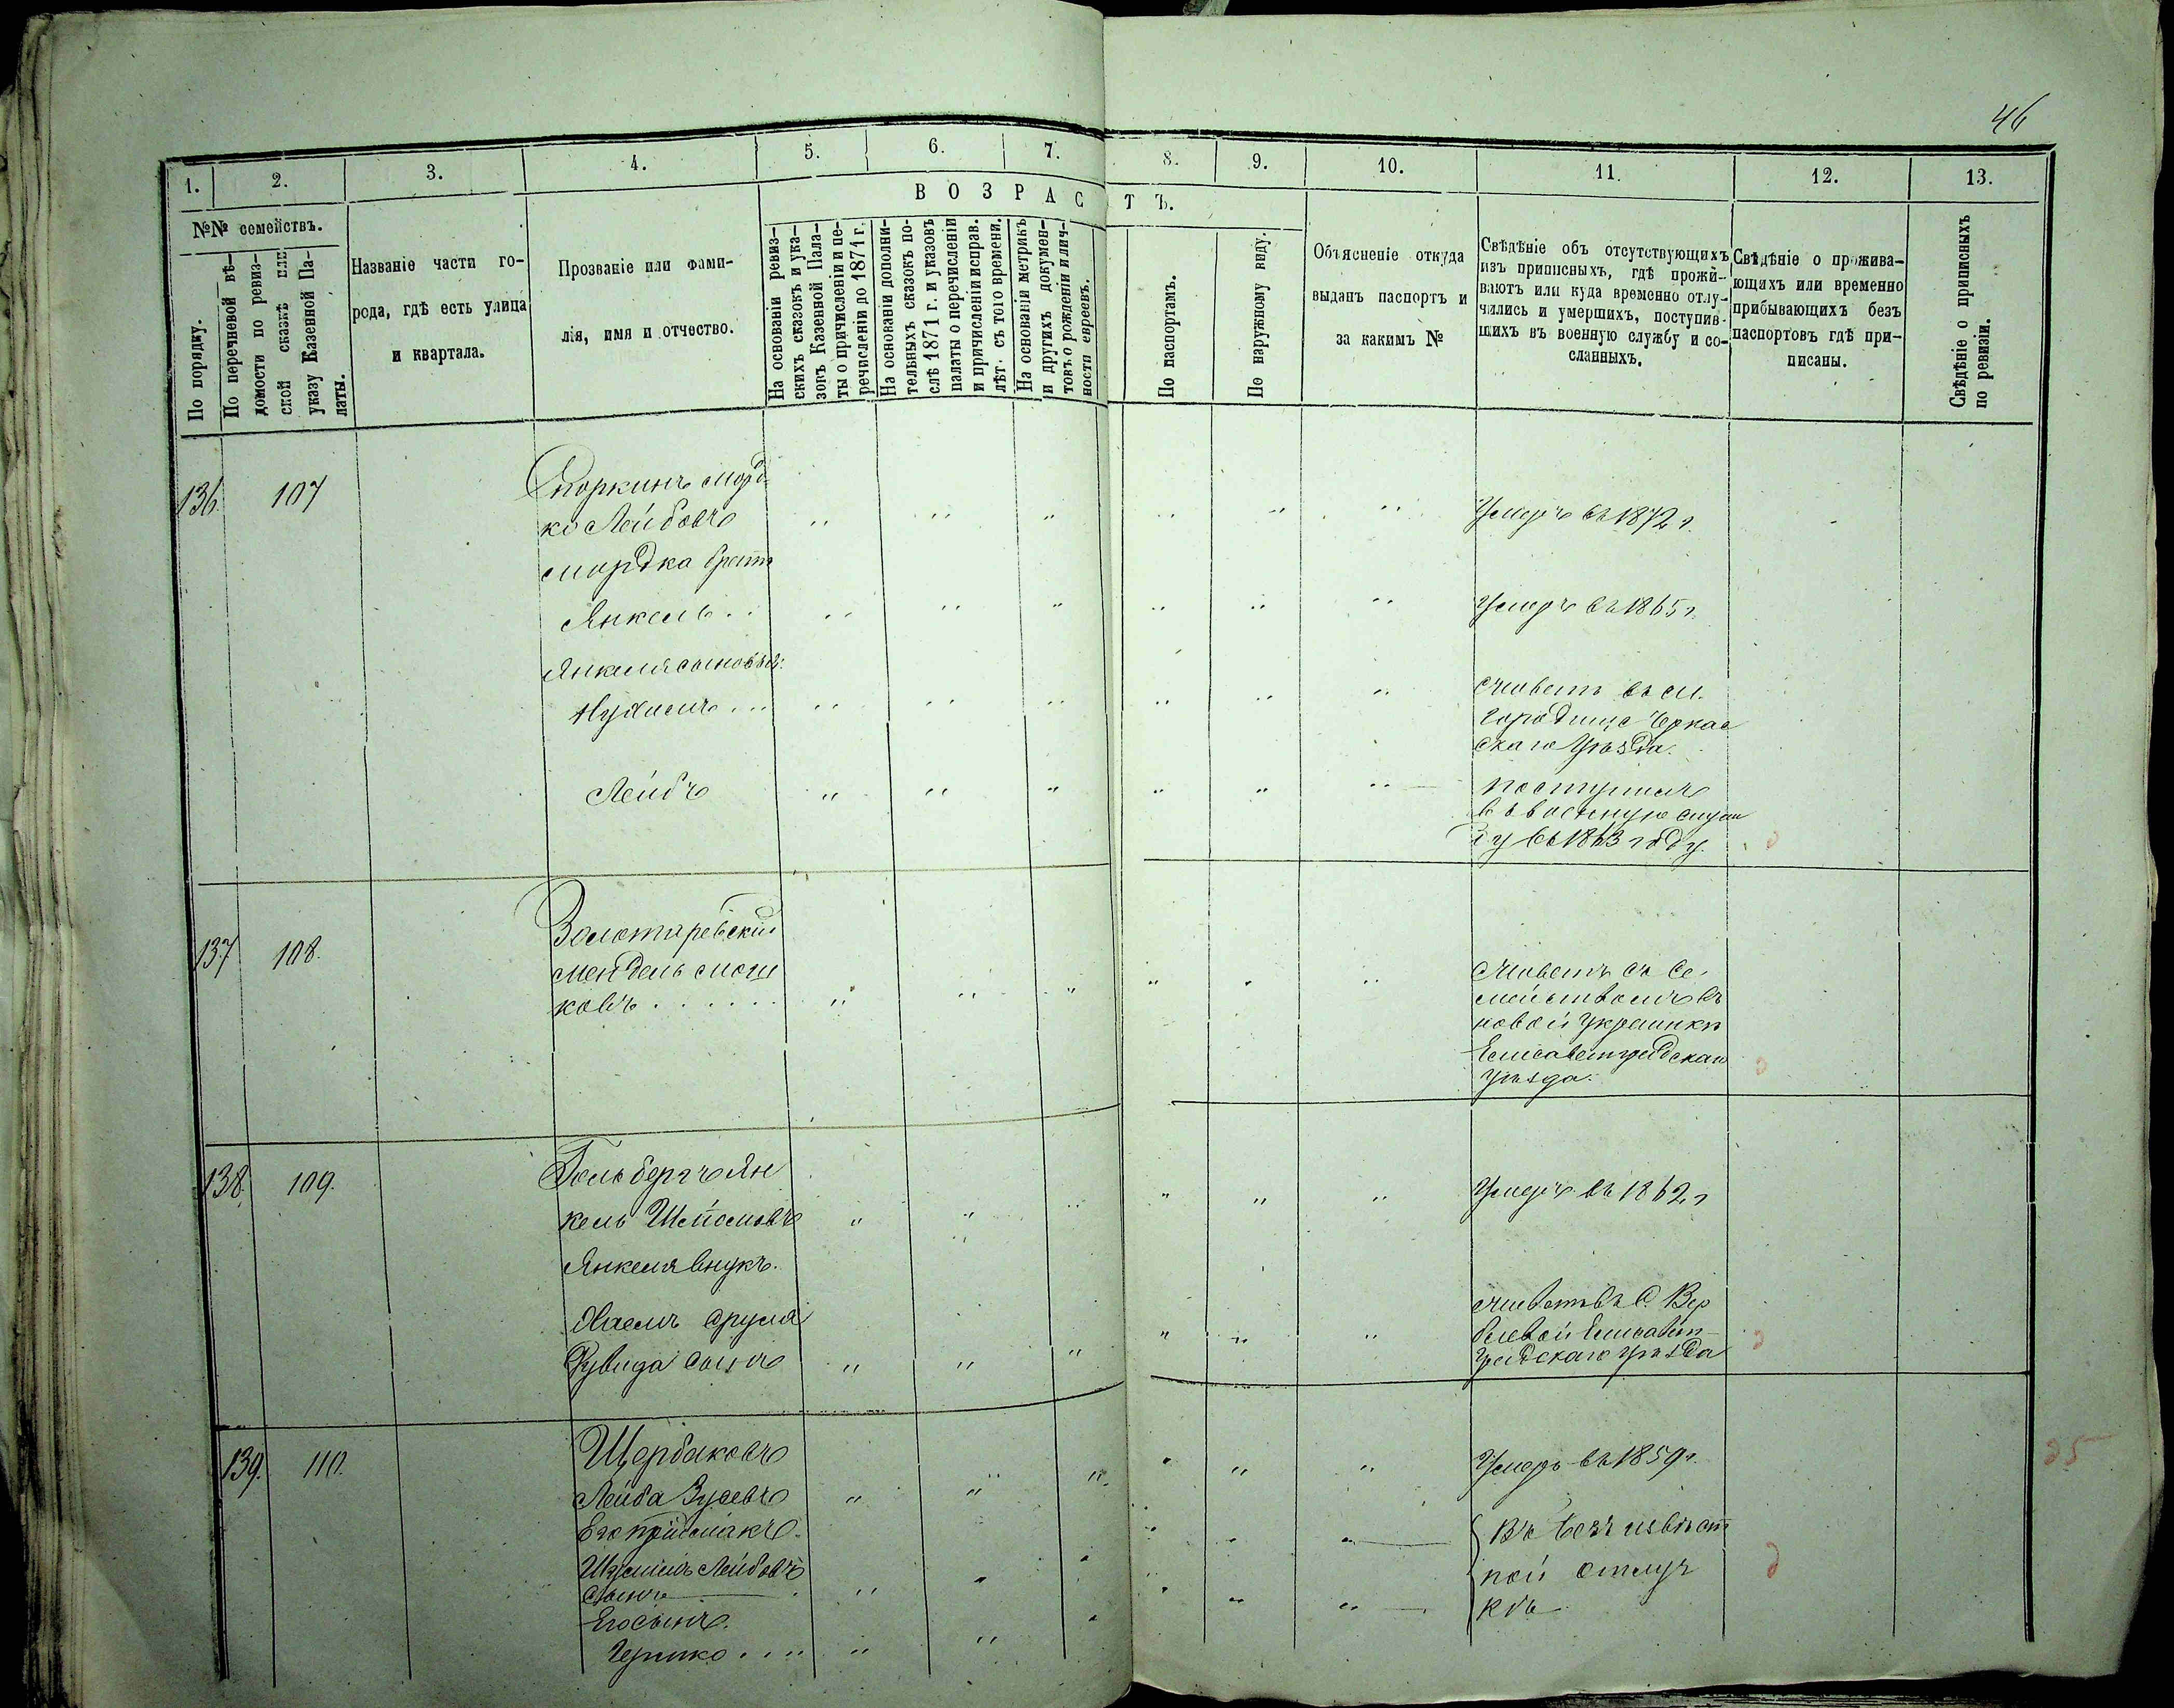 46
1. 2. 3. 4. 5. 6. 7. 8. 9. 10. 11. 12. 13.
ВОЗРАСТЪ.
№№ семействъ.
По порядку.
По перечневой вѣ-
домости по ревиз-
ской сказкѣ или
указу Казенной Па-
латы.
Названіе части го-
рода, гдѣ есть улица
и квартала.
Прозваніе или фами-
лія, имя и отчество.
На основаніи ревиз-
скихъ сказокъ и ука-
зовъ Казенной Пала-
ты о причисленіи и пе-
речисленіи до 1871 г.
На основаніи дополни-
тельныхъ сказокъ по-
слѣ 1871 г. и указовъ
палаты о перечисленіи
и причисленіи исправ.
лѣт. съ того времени.
На основаніи метрикъ
и другихъ докумен-
товъ о рожденіи и лич-
ности евреевъ.
По паспортамъ.
По наружному виду.
Объясненіе откуда
выданъ паспортъ и
за какимъ №
Свѣдѣніе объ отсутствующихъ
изъ приписныхъ, гдѣ прожи-
ваютъ или куда временно отлу-
чились и умершихъ, поступив-
шихъ въ военную службу и со-
сланныхъ.
Свѣдѣніе о прожива-
ющихъ или временно
прибывающихъ безъ
паспортовъ гдѣ при-
писаны.
Свѣдѣніе о приписныхъ
по ревизіи.
136. 107
Морд-
ко Лейбовъ
Умеръ въ 1872 г.
Мордка братъ
Янкель . .
Умеръ въ 1865 г.
Янкеля сыновья:
Нухимъ . . .
Живетъ въ м.
Городище Черкас
скаго Уѣзда.
Лейбъ
поступилъ
въ военную служ
бу въ 1863 году.
137 108.
Золотаревскій
Мендель Мош
ковъ . . . . . .
Живетъ съ се-
мействомъ въ
новой Украинкѣ
Елисаветградскаго
Уѣзда.
138. 109.
Гольбергъ Ян
кель Шлёмовъ
Умеръ въ 1862 г
Янкеля внукъ.
Хаимъ Сруля
сынъ
Живетъ въ С. Вер
блевой Елисавет-
градскаго уѣзда
139. 110.
Щербаковъ
Лейба Зусевъ
Умеръ въ 1859 г.
Его пріймакъ.
Лейбовъ
сынъ
Его сынъ.
Гершко . . . .
Въ безъизвѣст
ной отлуч
кѣ